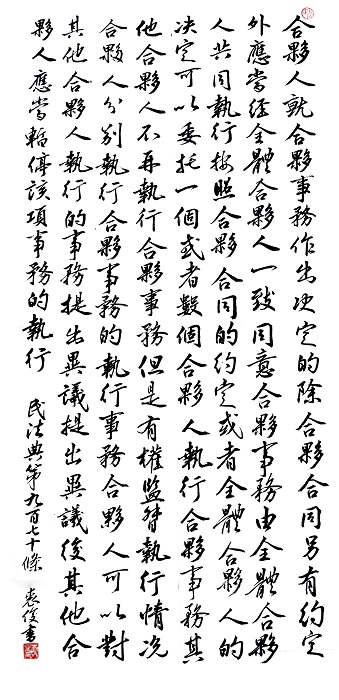 合夥人就合夥事務作出决定的除合夥合同另有約定
外應當經全體合夥人一致同意合夥事務由全體合夥
人共同執行按照合夥合同的約定或者全體合夥人的
决定可以委托一個或者數個合夥人執行合夥事務其
他合夥人不再執行合夥事務但是有權監督執行情况
合夥人分別執行合夥事務的執行事務合夥人可以對
其他合夥人執行的事務提出異議提出異議後其他合
夥人應當暫停該項事務的執行
民法典第九百七十條 袁俊書